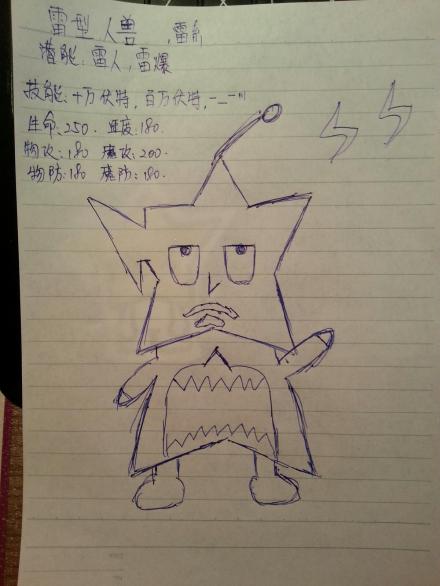 雷型人兽,雷系
潜能:雷人,雷爆
技能:十万伏特,百万伏特,
生命:250. 速度:180.
物攻:180 魔攻:200.
物防:180 魔防:180.